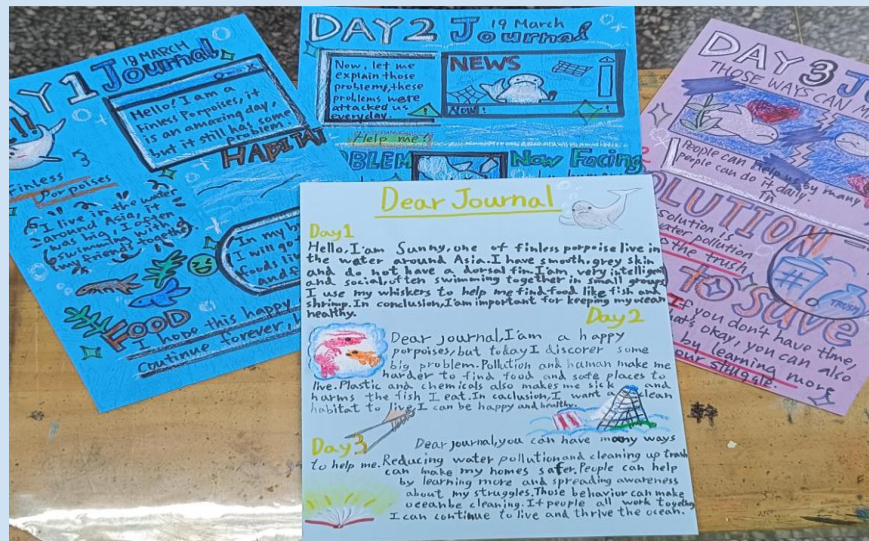 DAY 1 Journal
18 MARCH
Hello! I am a
Finless Porpoises, it
is an amazing day,
but it still has some
problem.
HABITAT
Finless
Porpoises
I live in the water
around Asia, I
was big, I often
swimming with
my friends together
In my
I will go
foods li
and f
FOOD
I hope this happy
continue forever,
DAY2 Journal
19 March
Now, let me
explain those
problems, these
problems were
attacked us
everyday.
NEWS
Now!
Help me!
Now Facing
DAY3 J
THOSE WAYS CAN M
People can help us by many
people can do it daily.
Solution is
water pollution
the trash
TRASH
To save
If you don't have time,
that's okay, you can also
by learning more
our struggle.
Dear Journal
Day1
Hello, I'am Sunny, one of finless porpoise live in
the water around Asia. I have smooth, grey skin
and do not have a dorsal fin. I'am very intelligen
and social, often swimming together in small groups
I use my whiskers to help me find food like fish and
shrimp. In conclusion, I'am important for keeping my ocean
healthy.
Day2
Dear journal, I'am a happy
porpoises, but today I discorer some
big problem. Pollution and human make me
harder to find food and safe places to
live. Plastic and chemicals also makes me sick and
harms the fish I eat. In caclusion, I want a clean
habitat to live, I can be happy and healthy.
Day3
Dear journal, you can have many ways
to help me. Reducing water pollution and cleaning up trash
can make my homes safer. People can help
by learning more and spreading awareness
about my struggles. Those behavior can make
oceanbe cleaning. If people all work together
I can continue to live and thrive the ocean.